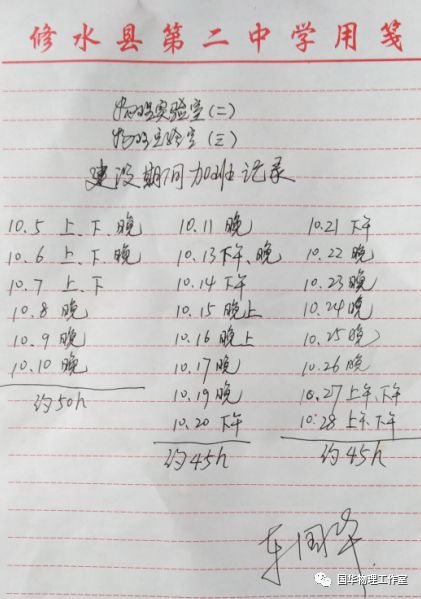 修水县第二中学用笺
物理实验室(二)
物理实验室(三)
建设期间加班记录
10.5 上、下、晚
10.6 上、下、晚
10.7 上、下
10.8 晚
10.9 晚
10.10 晚
约50h
10.11 晚
10.13 下午、晚
10.14 下午
10.15 晚上
10.16 晚上
10.17 晚
10.19 晚
10.20 下午
约45h
10.21 下午
10.22 晚
10.23 晚
10.24 晚
10.25 晚
10.26 晚
10.27 上午、下午
10.28 上午、下午
约45h
车国华
国华物理工作室